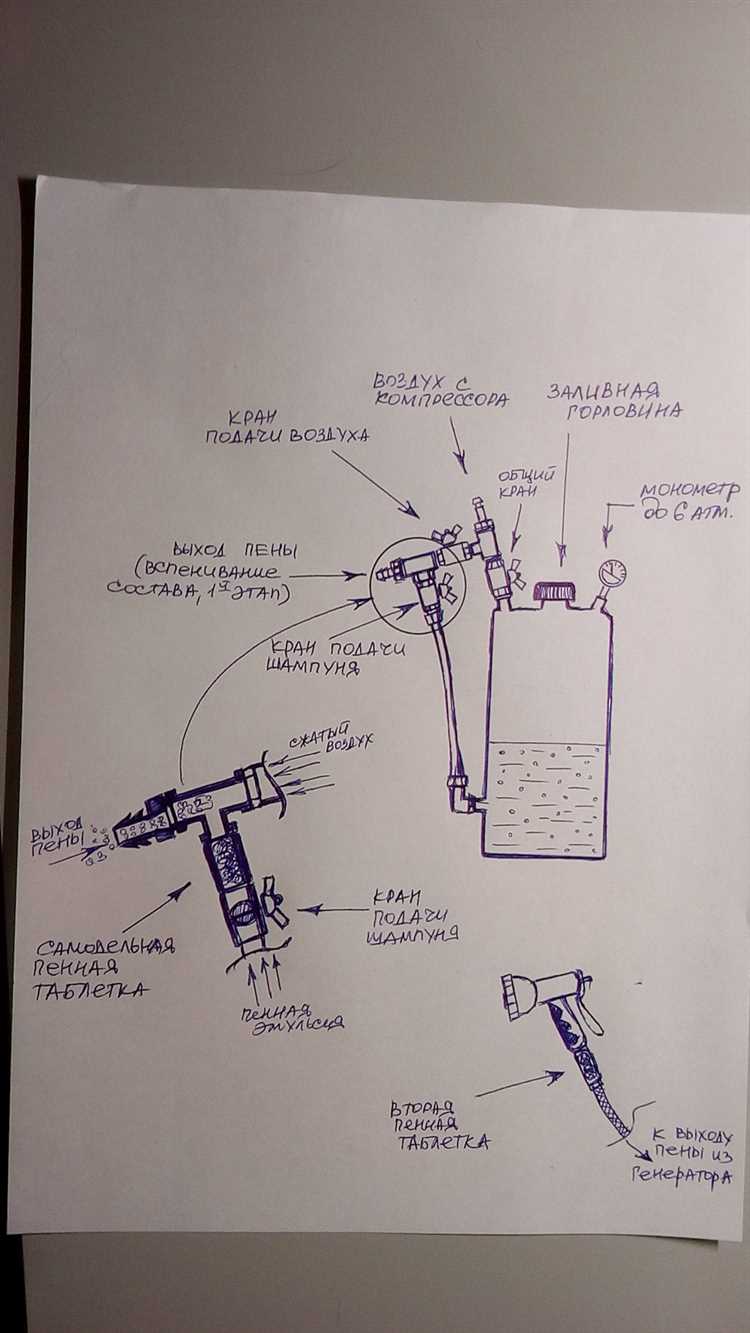 ВОЗДУХ С
КОМПРЕССОРА
ЗАЛИВНАЯ
ГОРЛОВИНА
КРАН
ПОДАЧИ ВОЗДУХА
ОБЩИЙ
КРАН
МОНОМЕТР
ДО 6 АТМ.
ВЫХОД ПЕНЫ
(ВСПЕНИВАНИЕ
СОСТАВА, 1й ЭТАП)
КРАН ПОДАЧИ
ШАМПУНЯ
СЖАТЫЙ
ВОЗДУХ
ВЫХОД
ПЕНЫ
КРАН
ПОДАЧИ
ШАМПУНЯ
САМОДЕЛЬНАЯ
ПЕННАЯ
ТАБЛЕТКА
ПЕННАЯ
ЭМУЛЬСИЯ
ВТОРАЯ
ПЕННАЯ
ТАБЛЕТКА
К ВЫХОДУ
ПЕНЫ ИЗ
ГЕНЕРАТОРА